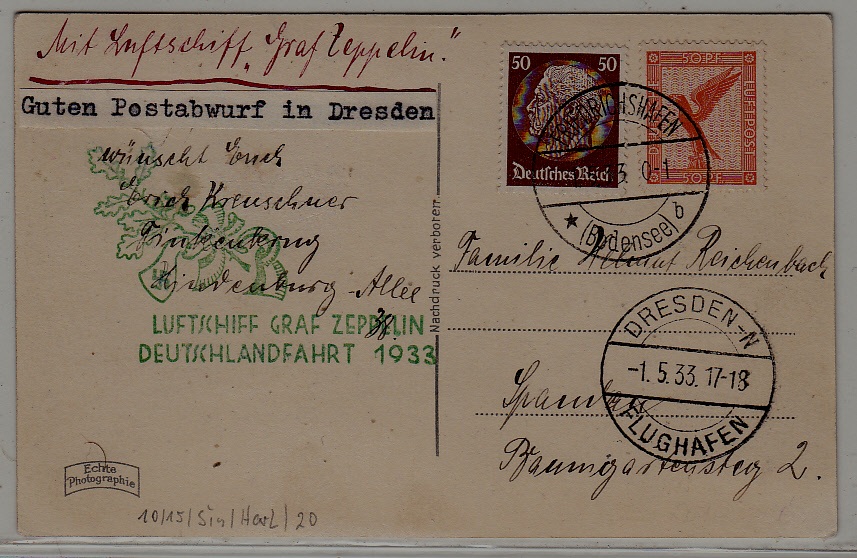 Mit Luftschiff „Graf Zeppelin."
Guten Postabwurf in Dresden
wünscht Euch
Erich Kreuschner
Finkenkrug
Hindenburg-Allee
38.
LUFTSCHIFF GRAF ZEPPELIN
DEUTSCHLANDFAHRT 1933
Echte
Photographie
10/15/Sin/Harl/20
Nachdruck verboten
50 50
Deutsches Reich
50 PF
LUFTPOST
50 PF
FRIEDRICHSHAFEN
3. 0-1
(Bodensee) b
Familie Helmut Reichenbach
DRESDEN-N
-1.5.33.17-18
FLUGHAFEN
Spandau
Baumgartensteg 2.